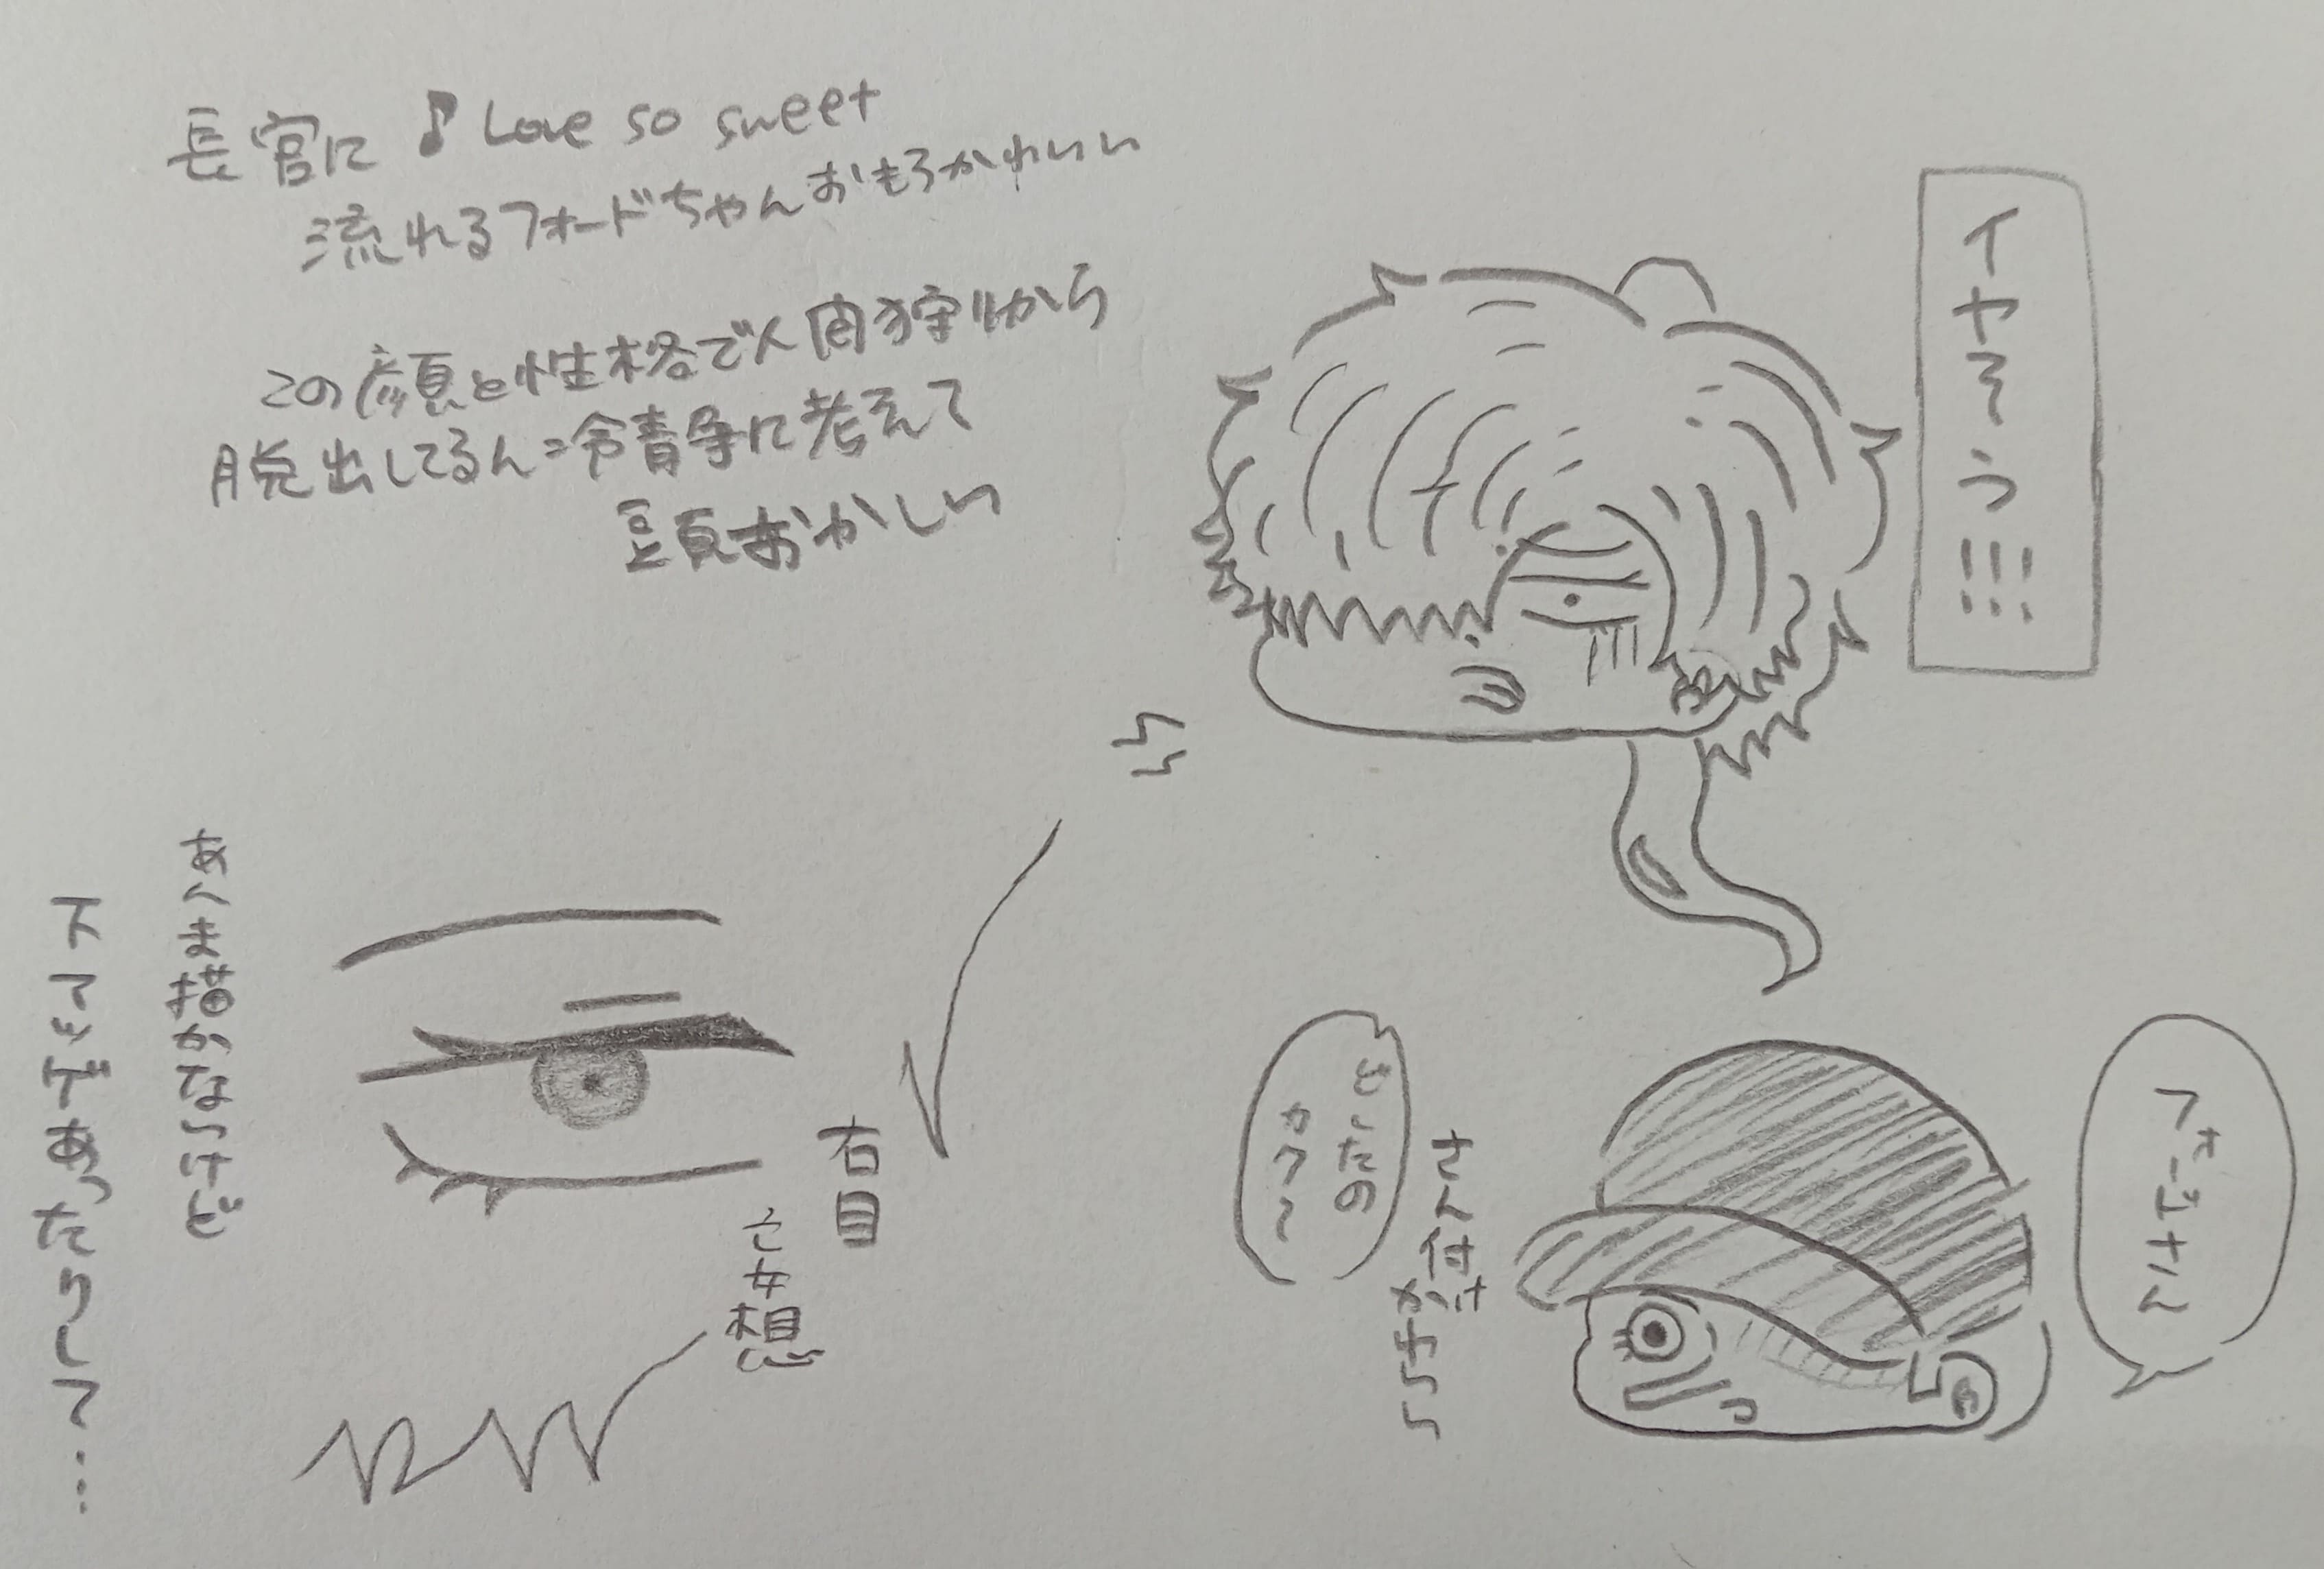 長官に ♪ Love so sweet
流れるフォードちゃんおもろかわいい
この顔と性格で人肉狩りから
脱出してるん冷静に考えて
頭おかしい
イヤそう!!!
フォードサン
さん付け
かわいい
どしたの
カワイ〜
右目
妄想
あくまで描かないけど
でもって
あったりして…